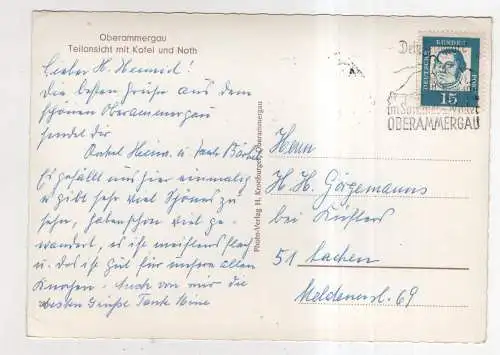 Oberammergau
Teilansicht mit Kofel und Noth
Lieber H. Heinrid!
Die besten Grüße aus dem
schönen Oberammergau
sendet dir
Onkel Heinr. u. Tante Bärbel
Es gefällt uns hier einmalig
u gibt sehr viel Schönes zu
sehn, haben schon viel ge-
wandert, es ist meistens flach
u. das ist gut für unsere alten
Knochen. Auch von mir die
besten Grüße Tante Mine
Photo-Verlag H. Kronburger, Oberammergau
DEUTSCHE BUNDESPOST
15
im Sommer u. Winter
OBERAMMERGAU
Herrn
H. H. Görgemanns
bei Küsters
51 Aachen
69